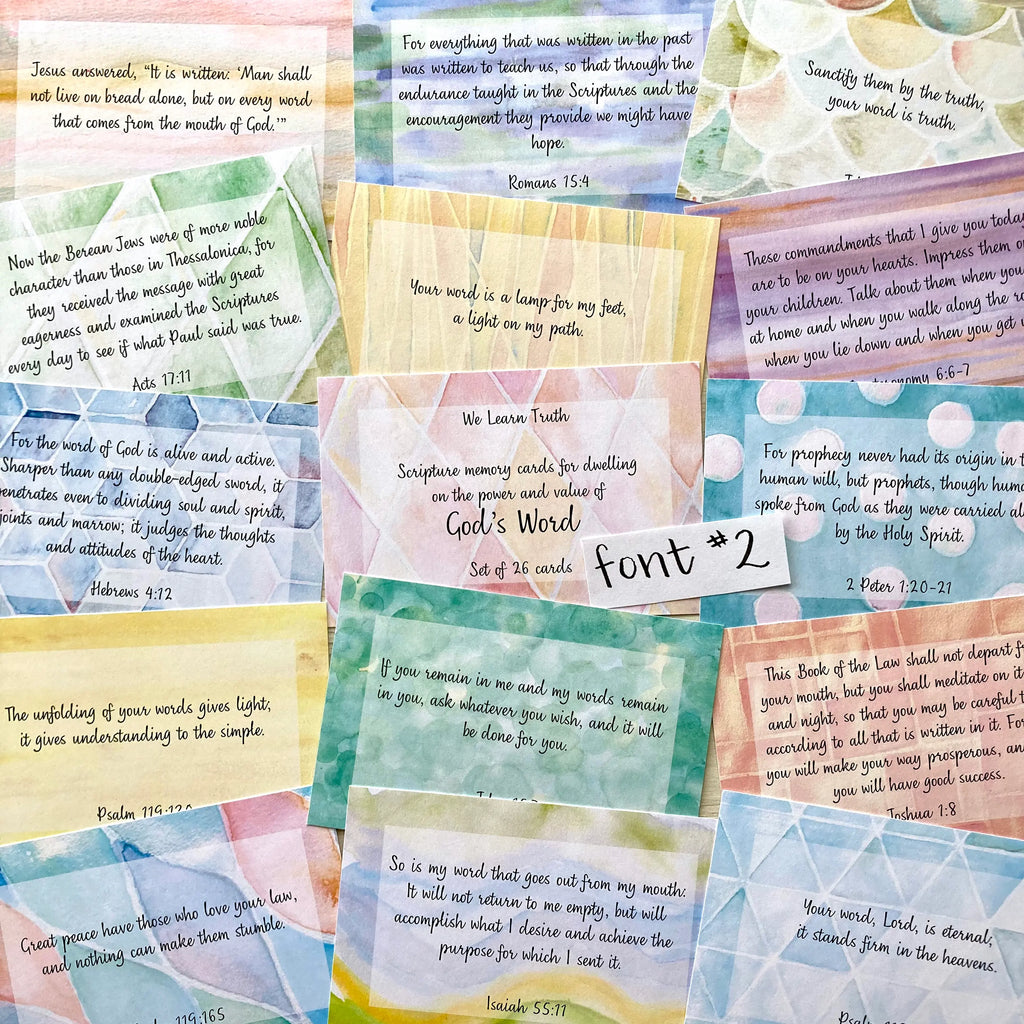 Jesus answered, “It is written: ‘Man shall
not live on bread alone, but on every word
that comes from the mouth of God.’”
For everything that was written in the past
was written to teach us, so that through the
endurance taught in the Scriptures and the
encouragement they provide we might have
hope.
Romans 15:4
Sanctify them by the truth;
your word is truth.
Now the Berean Jews were of more noble
character than those in Thessalonica, for
they received the message with great
eagerness and examined the Scriptures
every day to see if what Paul said was true.
Acts 17:11
Your word is a lamp for my feet,
a light on my path.
These commandments that I give you today
are to be on your hearts. Impress them on
your children. Talk about them when you
at home and when you walk along the
when you lie down and when you get
6:6-7
For the word of God is alive and active.
Sharper than any double-edged sword, it
penetrates even to dividing soul and spirit,
joints and marrow; it judges the thoughts
and attitudes of the heart.
Hebrews 4:12
We Learn Truth
Scripture memory cards for dwelling
on the power and value of
God's Word
Set of 26 cards
font #2
For prophecy never had its origin in
human will, but prophets, though
spoke from God as they were carried
by the Holy Spirit.
2 Peter 1:20-21
The unfolding of your words gives light;
it gives understanding to the simple.
Psalm 119:130
If you remain in me and my words remain
in you, ask whatever you wish, and it will
be done for you.
This Book of the Law shall not depart
your mouth, but you shall meditate on it
and night, so that you may be careful
according to all that is written in it. For
you will make your way prosperous, and
you will have good success.
Joshua 1:8
Great peace have those who love your law,
and nothing can make them stumble.
119:165
So is my word that goes out from my mouth:
It will not return to me empty, but will
accomplish what I desire and achieve the
purpose for which I sent it.
Isaiah 55:11
Your word, Lord, is eternal;
it stands firm in the heavens.
Psalm